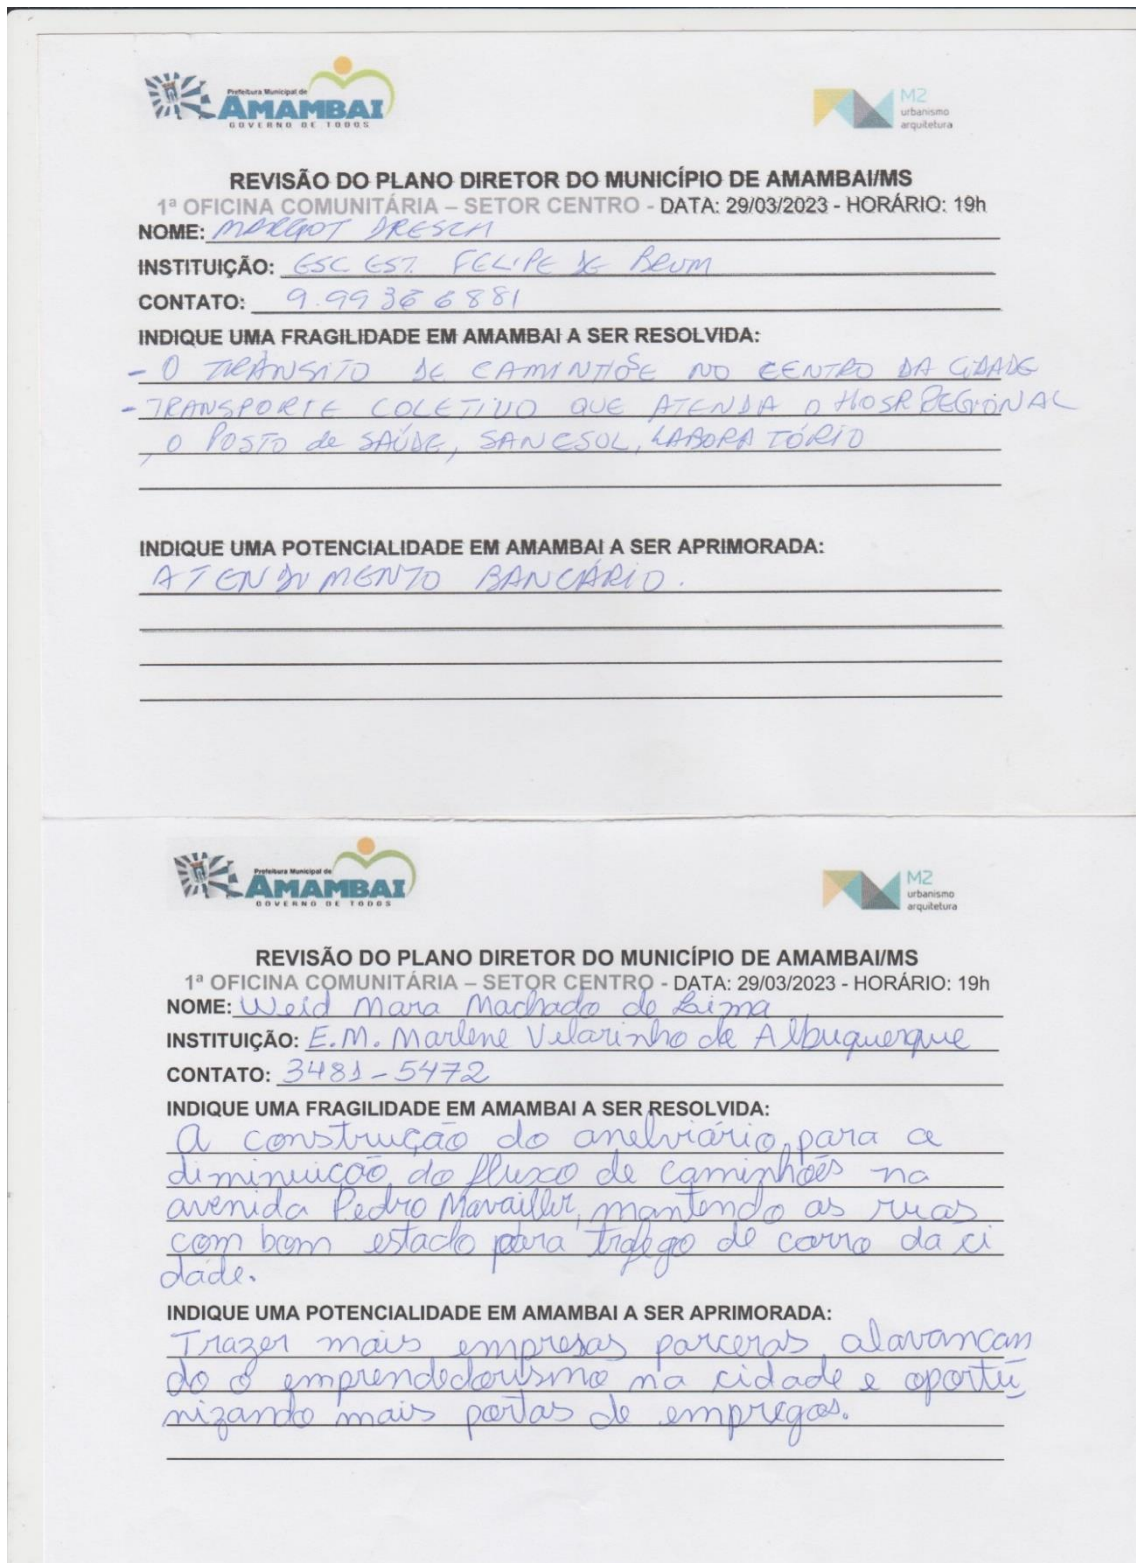 Prefeitura Municipal de
AMAMBAI
GOVERNO DE TODOS
M2
urbanismo
arquitetura
REVISÃO DO PLANO DIRETOR DO MUNICÍPIO DE AMAMBAI/MS
1ª OFICINA COMUNITÁRIA – SETOR CENTRO - DATA: 29/03/2023 - HORÁRIO: 19h
NOME: MARGOT DRESCH
INSTITUIÇÃO: ESC EST. FELIPE DE BRUM
CONTATO: 9.99366881
INDIQUE UMA FRAGILIDADE EM AMAMBAI A SER RESOLVIDA:
- O TRÂNSITO DE CAMINHÕE NO CENTRO DA CIDADE
- TRANSPORTE COLETIVO QUE ATENDA O HOSP REGIONAL
, O POSTO de SAÚDE, SANESUL, LABORATÓRIO
INDIQUE UMA POTENCIALIDADE EM AMAMBAI A SER APRIMORADA:
ATENDIMENTO BANCÁRIO.
Prefeitura Municipal de
AMAMBAI
GOVERNO DE TODOS
M2
urbanismo
arquitetura
REVISÃO DO PLANO DIRETOR DO MUNICÍPIO DE AMAMBAI/MS
1ª OFICINA COMUNITÁRIA – SETOR CENTRO - DATA: 29/03/2023 - HORÁRIO: 19h
NOME: Weid Mara Machado de Lima
INSTITUIÇÃO: E.M. Marlene Vilarinho de Albuquerque
CONTATO: 3481-5472
INDIQUE UMA FRAGILIDADE EM AMAMBAI A SER RESOLVIDA:
A construção do anelviário, para a
diminuição do fluxo de caminhões na
avenida Pedro Manvailler, mantendo as ruas
com bom estado para trafego de carro da ci
dade.
INDIQUE UMA POTENCIALIDADE EM AMAMBAI A SER APRIMORADA:
Trazer mais empresas parceras, alavancan
do o emprendedorismo na cidade e oportu
nizando mais portas de empregos.